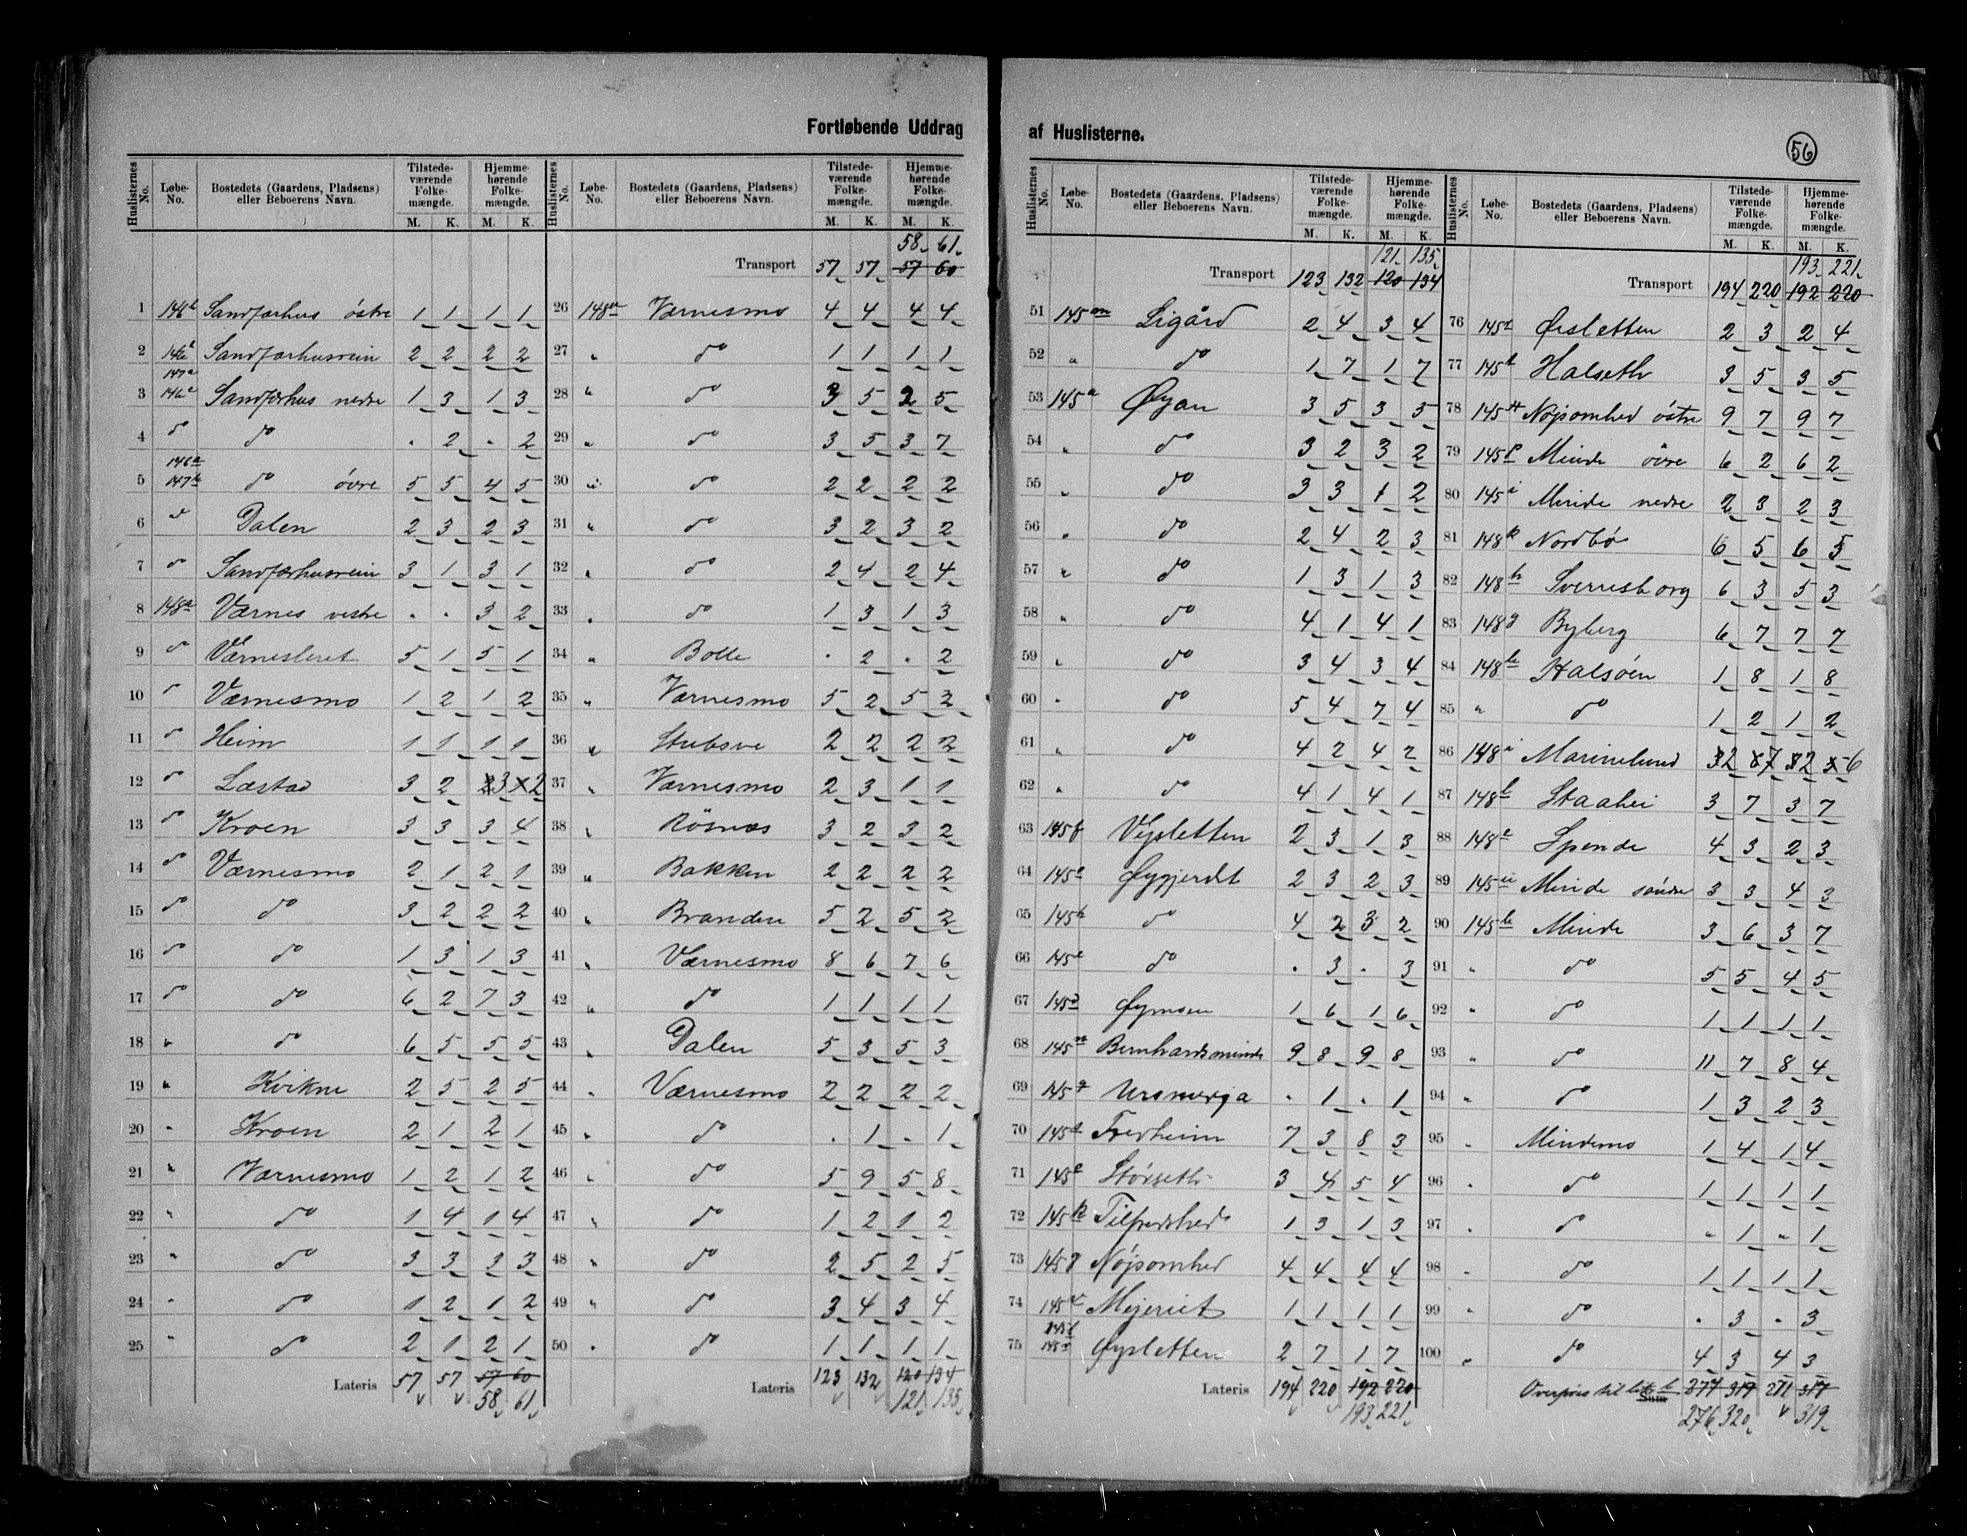 Fortløbende Uddrag af Huslisterne.
56
Huslisternes No. Løbe-No. Bostedets (Gaardens, Pladsens) eller Beboerens Navn. Tilstedeværende Folkemængde. M. K. Hjemmehørende Folkemængde. M. K.
1 146b Sandfærhus østre 1 1 1 1
2 Sandfærhusrein 2 2 2 2
3 147a 146c Sandfærhus nedre 1 3 1 3
4 do do . 2 . 2
5 146a 147b do øvre 5 5 4 5
6 Dalen 2 3 2 3
7 do Sandfærhusrein 3 1 3 1
8 148a Værnes vestre . . 3 2
9 do Værnesleret 5 1 5 1
10 Værnesmo 1 2 1 2
11 do Heim 1 1 1 1
12 do Læstad 3 2 3 2
13 do Kroen 3 3 3 4
14 do Værnesmo 2 1 2 1
15 do do 3 2 2 2
16 do do 1 3 1 3
17 do do 6 2 7 3
18 " do 6 5 5 5
19 " Kvikne 2 5 2 5
20 " Kroen 2 1 2 1
21 " Værnesmo 1 2 1 2
22 " do 1 4 1 4
23 " do 3 3 3 3
24 " do 1 2 1 2
25 " do 2 1 2 1
Lateris 57 57 57 60
58 61
Huslisternes No. Løbe-No. Bostedets (Gaardens, Pladsens) eller Beboerens Navn. Tilstedeværende Folkemængde. M. K. Hjemmehørende Folkemængde. M. K.
58 61
Transport 57 57 57 60
26 148a Værnesmo 4 4 4 4
27 " do 1 1 1 1
28 " do 3 5 2 5
29 " do 3 5 3 7
30 " do 2 2 2 2
31 " do 3 2 3 2
32 " do 2 4 2 4
33 " do 1 3 1 3
34 " Bolle . 2 . 2
35 " Værnesmo 5 2 5 2
36 " Stubsve 2 2 2 2
37 " Værnesmo 2 3 1 1
38 " Røsnæs 3 2 3 2
39 " Bakken 2 2 2 2
40 " Branden 5 2 5 2
41 " Værnesmo 8 6 7 6
42 " do 1 1 1 1
43 " Dalen 5 3 5 3
44 " Værnesmo 2 2 2 2
45 " do . 1 . 1
46 " do 5 9 5 8
47 " do 1 2 1 2
48 " do 2 5 2 5
49 " do 3 4 3 4
50 " do 1 1 1 1
Lateris 123 132 120 134
121 135
Huslisternes No. Løbe-No. Bostedets (Gaardens, Pladsens) eller Beboerens Navn. Tilstedeværende Folkemængde. M. K. Hjemmehørende Folkemængde. M. K.
121 135
Transport 123 132 120 134
51 145m Ligård 2 4 3 4
52 " do 1 7 1 7
53 145a Øyan 3 5 3 5
54 " do 3 2 3 2
55 " do 3 3 1 2
56 " do 2 4 2 3
57 " do 1 3 1 3
58 " do 4 1 4 1
59 " do 3 4 3 4
60 " do 5 4 7 4
61 " do 4 2 4 2
62 " do 4 1 4 1
63 145f Vejsletten 2 3 1 3
64 145 Øygjerdt 2 3 2 3
65 145h do 4 2 3 2
66 145c do . 3 . 3
67 145d Øymoen 1 6 1 6
68 145n Bernhardsminde 9 8 9 8
69 145 . 1 . 1
70 145 Fredheim 7 3 8 3
71 145 Størseth 3 4 5 4
72 145 Tilfredshed 1 3 1 3
73 145 Nøjsomhed 4 4 4 4
74 145 Mejeriet 1 1 1 1
75 145 Øysletten 2 7 1 7
Lateris 194 220 192 220
193 221
Huslisternes No. Løbe-No. Bostedets (Gaardens, Pladsens) eller Beboerens Navn. Tilstedeværende Folkemængde. M. K. Hjemmehørende Folkemængde. M. K.
193 221
Transport 194 220 192 220
76 145 Ørsletten 2 3 2 4
77 145 Halseth 3 5 3 5
78 145 Nøjsomhed østre 9 7 9 7
79 145p Minde øvre 6 2 6 2
80 145i Minde nedre 2 3 2 3
81 148k Nordbø 6 5 6 5
82 148h Sverresborg 6 3 5 3
83 148g Byberg 6 7 7 7
84 148b Halsøen 1 8 1 8
85 " do 1 2 1 2
86 148i Marinelund 2 7 2 6
87 148 Staahei 3 7 3 7
88 148 Spende 4 3 2 3
89 145 Minde søndre 3 3 4 3
90 145b Minde 3 6 3 7
91 " do 5 5 4 5
92 " do 1 1 1 1
93 " do 11 7 8 4
94 " do 1 3 2 3
95 " Mindemo 1 4 1 4
96 " do 1 1 1 1
97 " do " 1 " 1
98 " do 1 1 1 1
99 " do . 3 . 3
100 " do 4 3 4 3
Sum 277 319 271 317
276 320 319